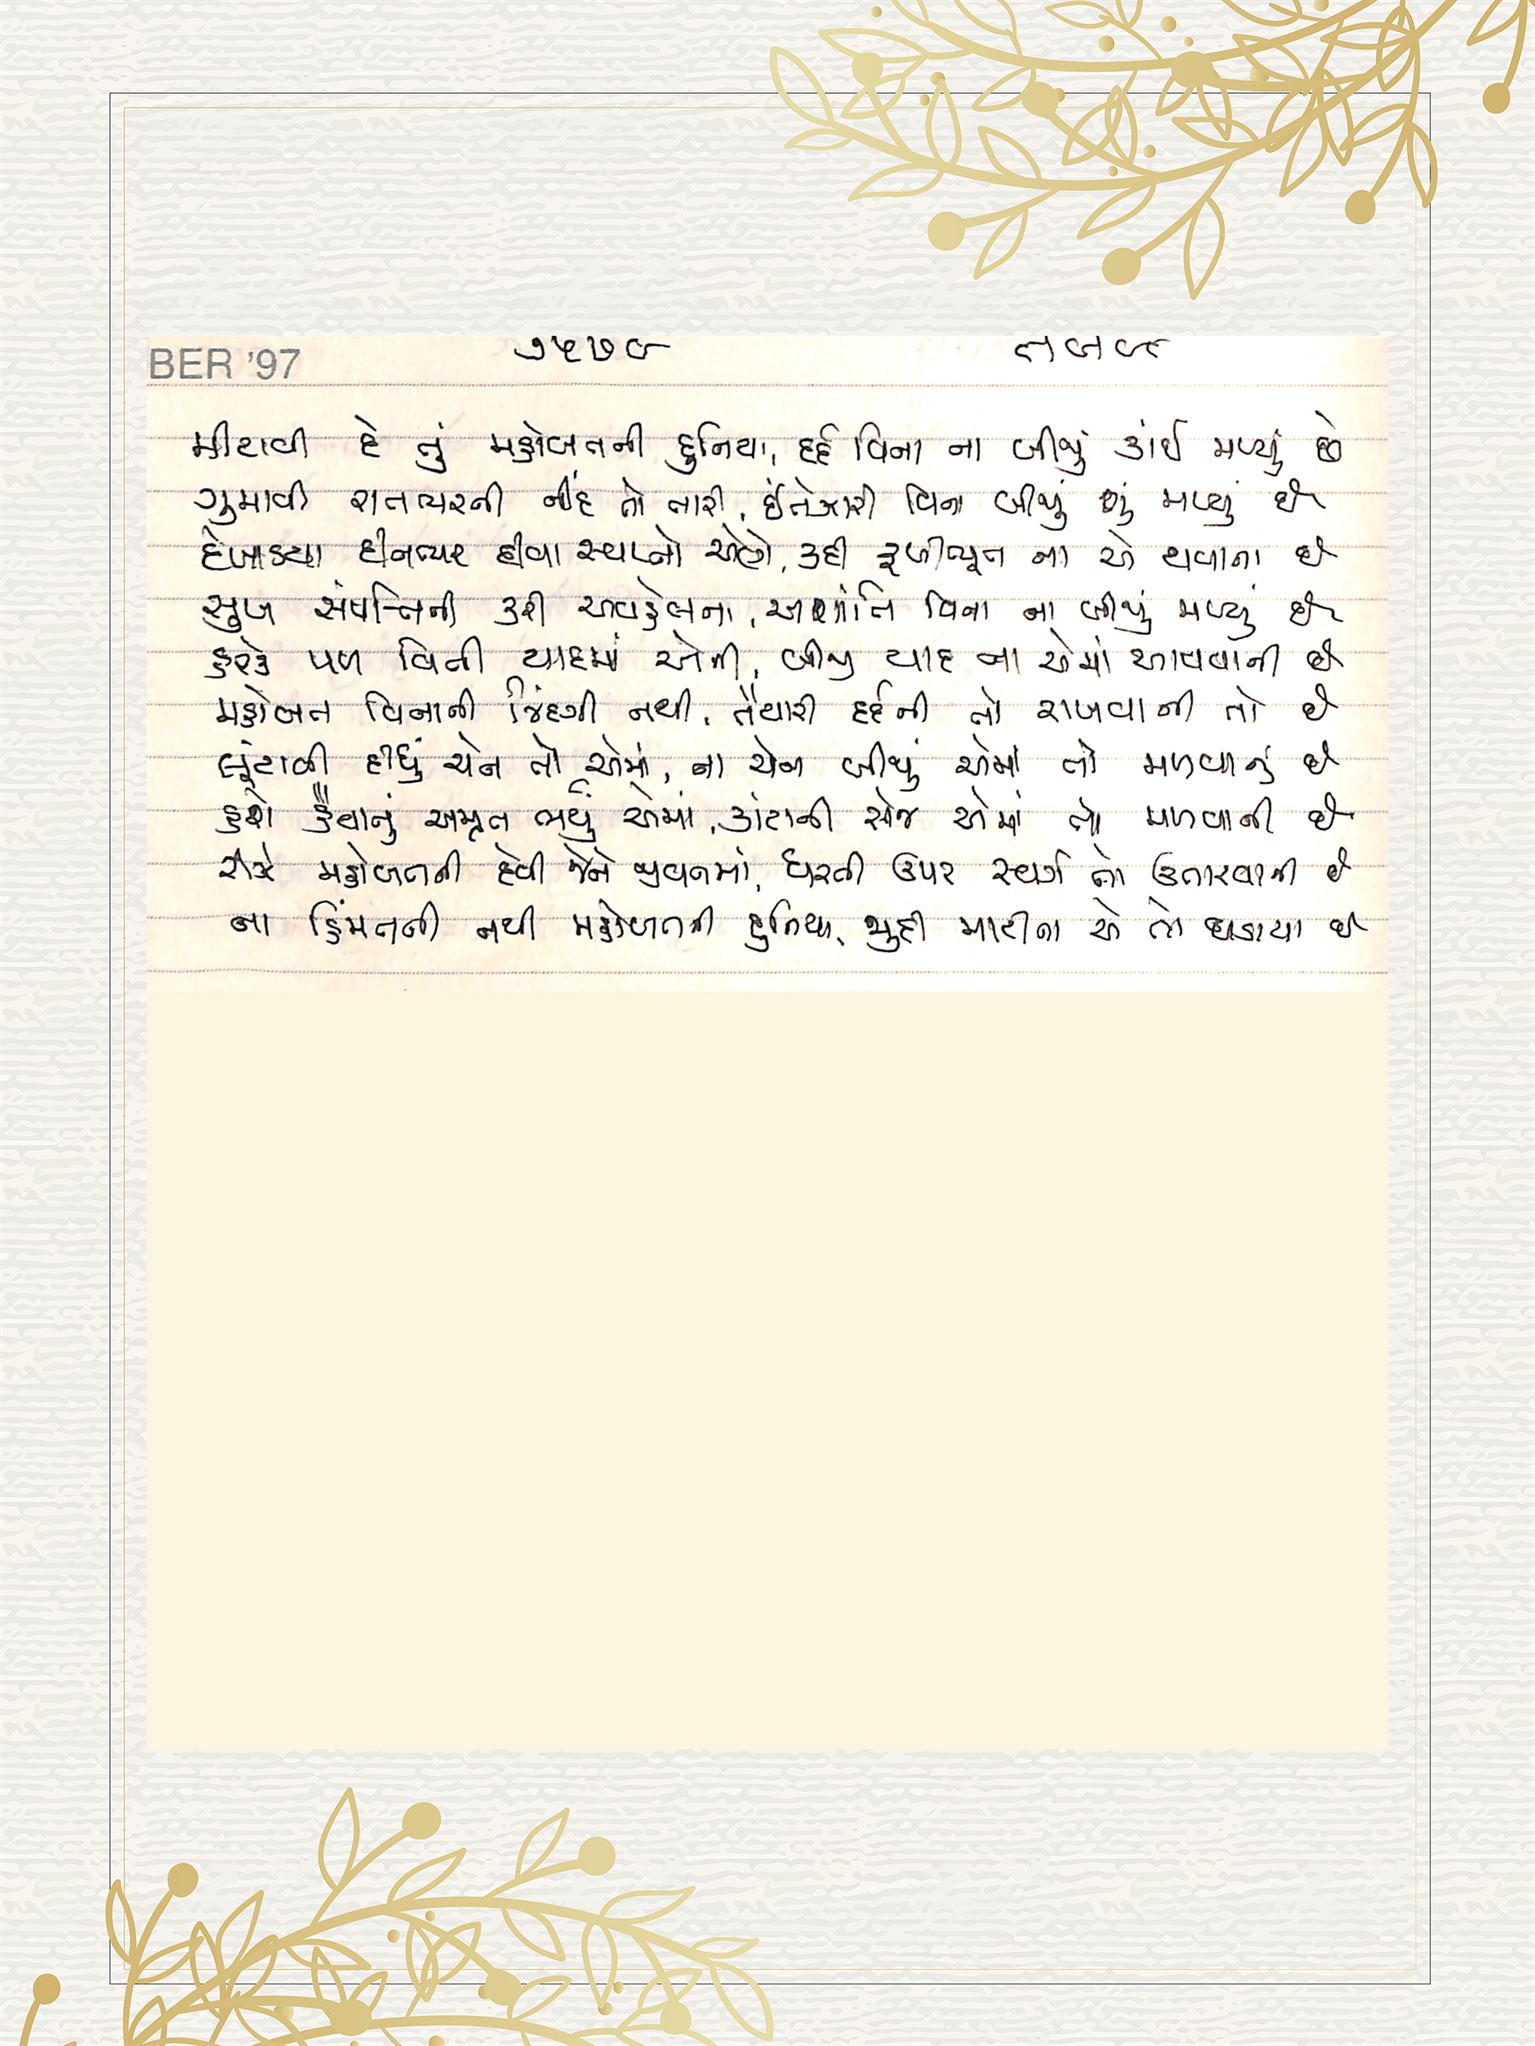 BER '97
૭૫૭૦
મીટાવી દે તું મહોબતની દુનિયા, દર્દ વિના ના બીજું કાંઈ મળ્યું છે
ગુમાવી રાતભરની નીંદ તો તારી, ઈંતેઝારી વિના બીજું શું મળ્યું છે
દેખાડયા દીનભર દીવા સ્વપ્નો એણે, કદી ફળીભૂત ના એ થવાના છે
સુખ સંપત્તિની કરી અવહેલના, અશાંતિ વિના ના બીજું મળ્યું છે
હરેક પળ વિતી યાદમાં એની, બીજી યાદ ના એમાં આવવાની છે
મહોબત વિનાની જિંદગી નથી, તૈયારી દર્દની તો રાખવાની તો છે
લૂંટાવી દીધું ચેન તો એમાં, ના ચેન બીજું એમાં તો મળવાનું છે
હશે હૈયાનું અમૃત ભર્યું એમાં, કાંટાની સેજ એમાં તો મળવાની છે
રીઝે મહોબતની દેવી જેને જીવનમાં, ધરતી ઉપર સ્વર્ગ તો ઉતારવાની છે
ના હિંમતની નથી મહોબતની દુનિયા, જુદી માટીના એ તો ઘડાયા છે